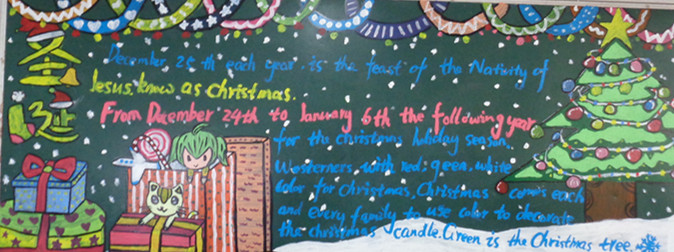 圣诞
December 25th each year, is the feast of the Nativity of
Jesus, know as Christmas.
From December 24th to January 6th the following year
for the christmas holiday season.
Westerners with red, green, white
color for Christmas, Christmas comes each
and every family to use color to decorate
the christmas candle. Green is the Christmas tree.